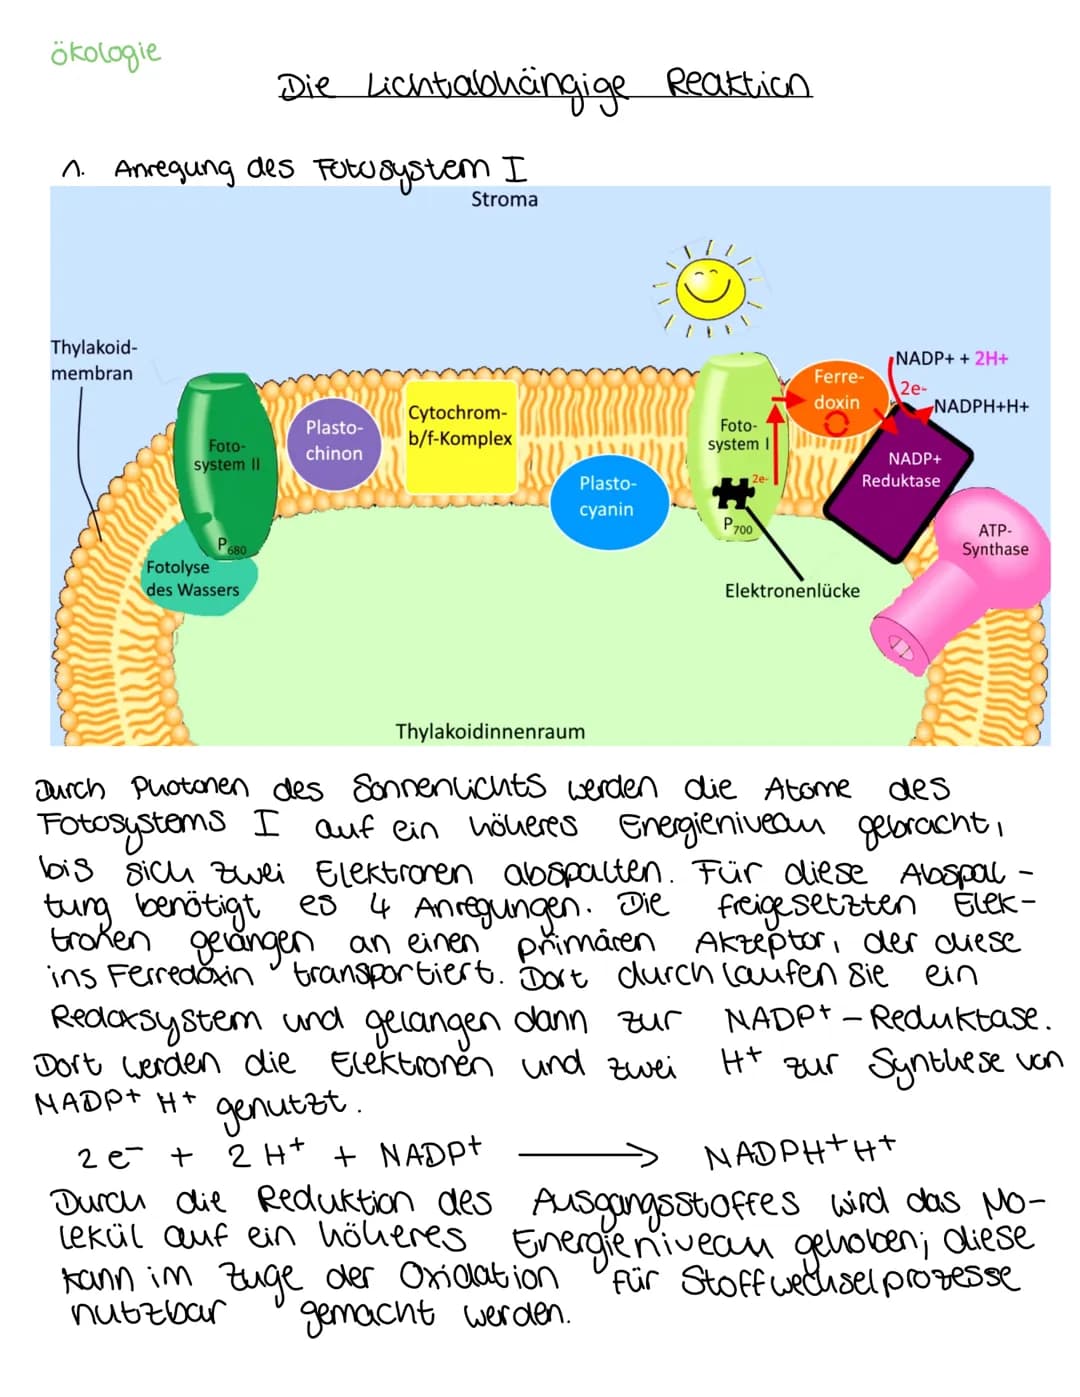 ökologie
Die Lichtabhängige Reaktion
1. Anregung des Fotosystem I
Stroma
Thylakoid-
membran
Foto-
system II
P680
Fotolyse
des Wassers
Plasto-
chinon
Cytochrom-
b/f-Komplex
Plasto-
cyanin
Foto-
system I
2e-
P700
Elektronenlücke
Ferre-
doxin
NADP+ + 2H+
2e-
NADPH+H+
NADP+
Reduktase
ATP-
Synthase
Thylakoidinnenraum
Durch Photonen des Sonnenlichts werden die Atome des
Fotosystems I auf ein höheres Energieniveau gebracht,
bis sich zwei Elektronen abspalten. Für diese Abspal-
tung benötigt es 4 Anregungen. Die freigesetzten Elek-
tronen gelangen an einen primären Akzeptor, der diese
ins Ferredoxin transportiert. Dort durchlaufen sie ein
Redoxsystem und gelangen dann zur NADP+ - Reduktase.
Dort werden die Elektronen und zwei H+ zur Synthese von
NADP+ H+ genutzt.
2 e- + 2 H+ + NADP+ → NADPH+H+
Durch die Reduktion des Ausgangsstoffes wird das Mo-
lekül auf ein höheres Energieniveau gehoben; diese
kann im Zuge der Oxidation für Stoffwechselprozesse
nutzbar gemacht werden.